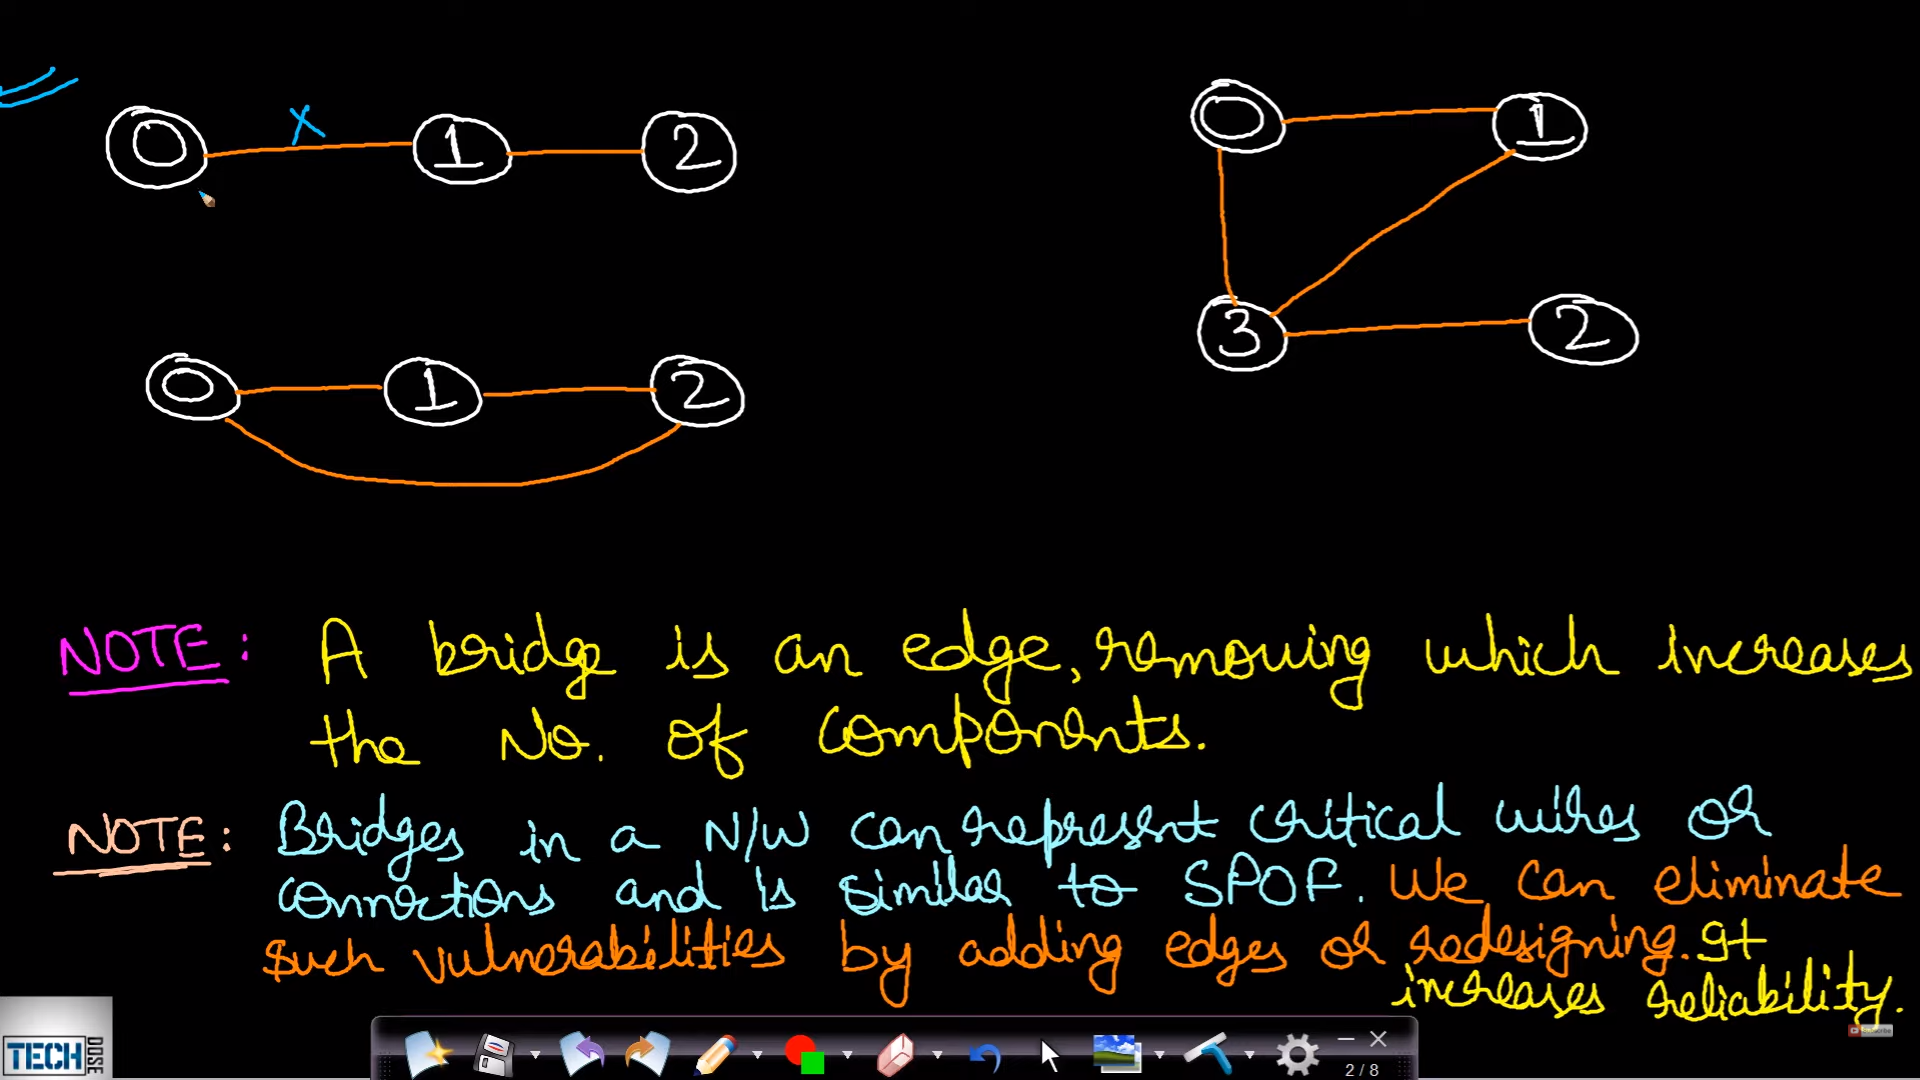 0 X 1 2
0 1
3 2
0 1 2
NOTE: A bridge is an edge, removing which increases
the No. of components.
NOTE: Bridges in a N/W can represent critical wires or
connections and is similar to SPOF. We can eliminate
such vulnerabilities by adding edges or redesigning. It
increases reliability.
TECH DOSE
Subscribe
2 / 8